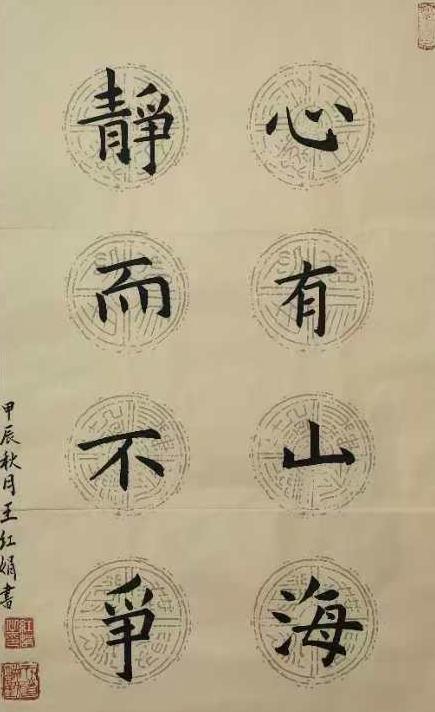 心有山海
靜而不爭
甲辰秋月王红娟書